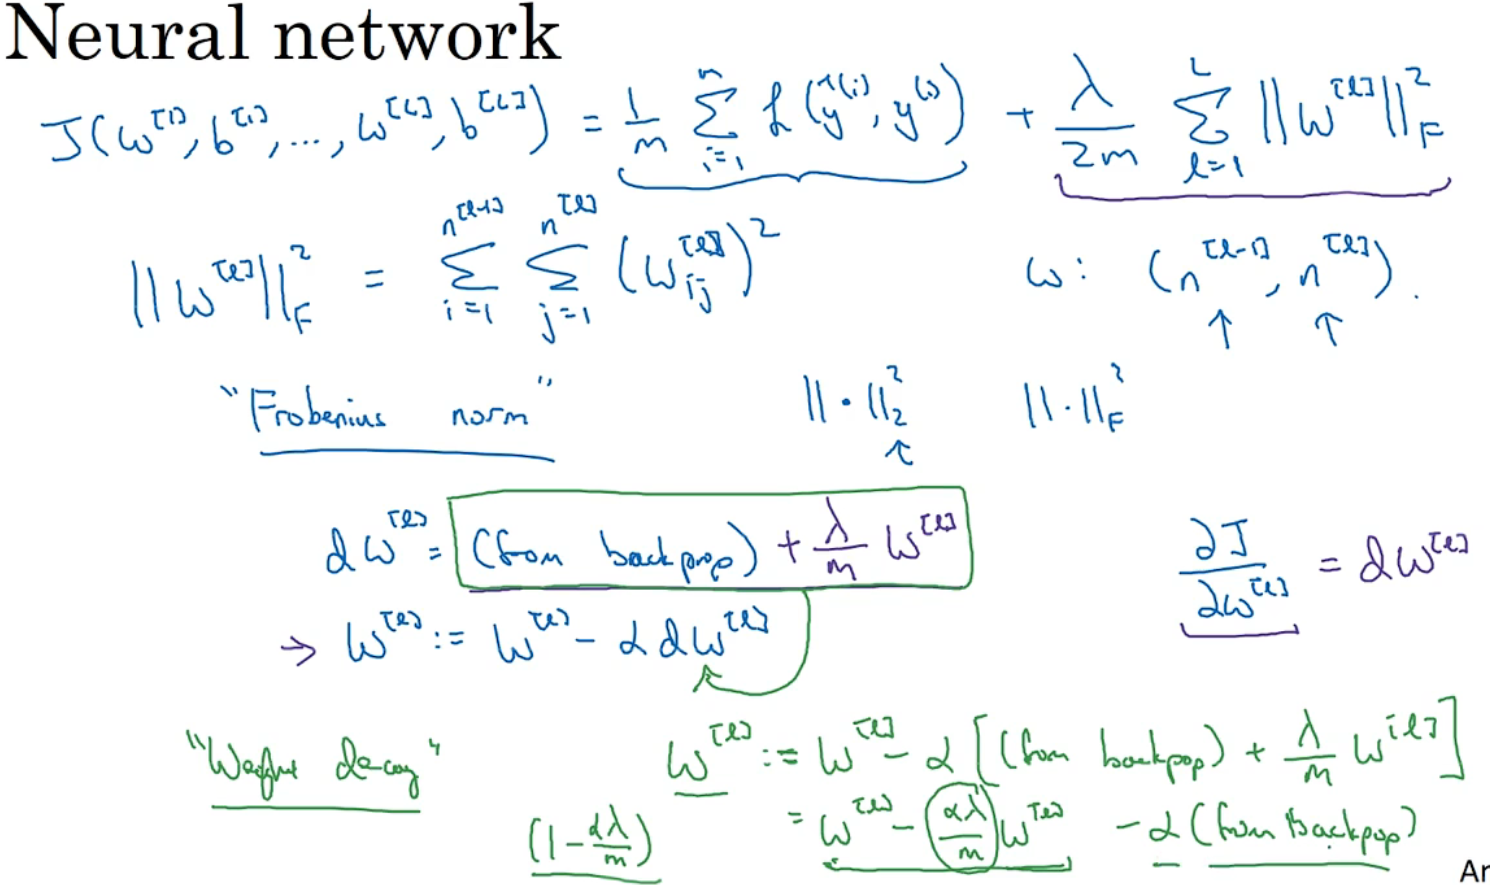 Neural network
J(w^[1], b^[1], ..., w^[L], b^[L]) = 1/m Σ_{i=1}^{m} L(ŷ^(i), y^(i)) + λ/2m Σ_{l=1}^{L} ||w^[l]||_F^2
||w^[l]||_F^2 = Σ_{i=1}^{n^[l-1]} Σ_{j=1}^{n^[l]} (w_ij^[l])^2 w: (n^[l-1], n^[l]).
"Frobenius norm" ||·||_2^2 ||·||_F^2
dw^[l] = (from backprop) + λ/m w^[l] ∂J/∂w^[l] = dw^[l]
→ w^[l] := w^[l] - α dw^[l]
"Weight decay" w^[l] := w^[l] - α[(from backpop) + λ/m w^[l]]
(1 - αλ/m) = w^[l] - αλ/m w^[l] - α(from backpop)
Ar